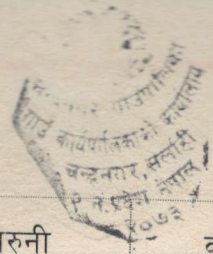 गाउँपालिका
गाउँ कार्यपालिकाको कार्यालय
चन्द्रनगर, सर्लाही
२ नं. प्रदेश नेपाल
२०७३
रुनी